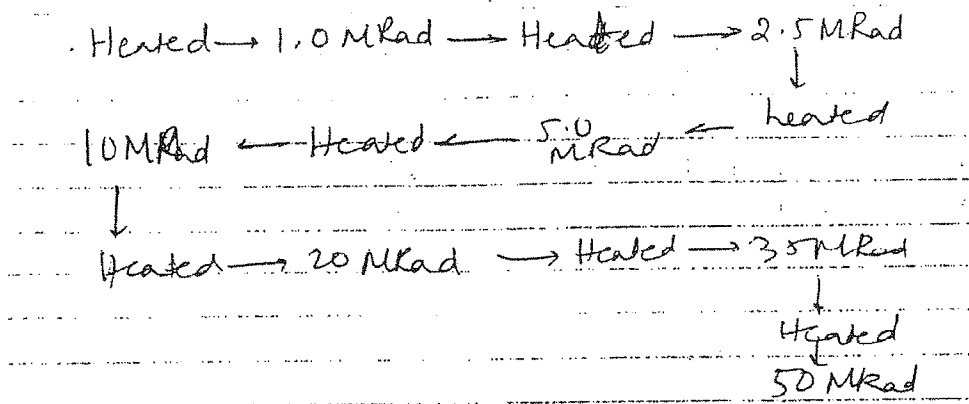 . Heated → 1.0 MRad → Heated → 2.5 MRad
↓
heated
10 MRad ← Heated ← 5.0 MRad ←
↓
Heated → 20 MRad → Heated → 35 MRad
↓
Heated
↓
50 MRad